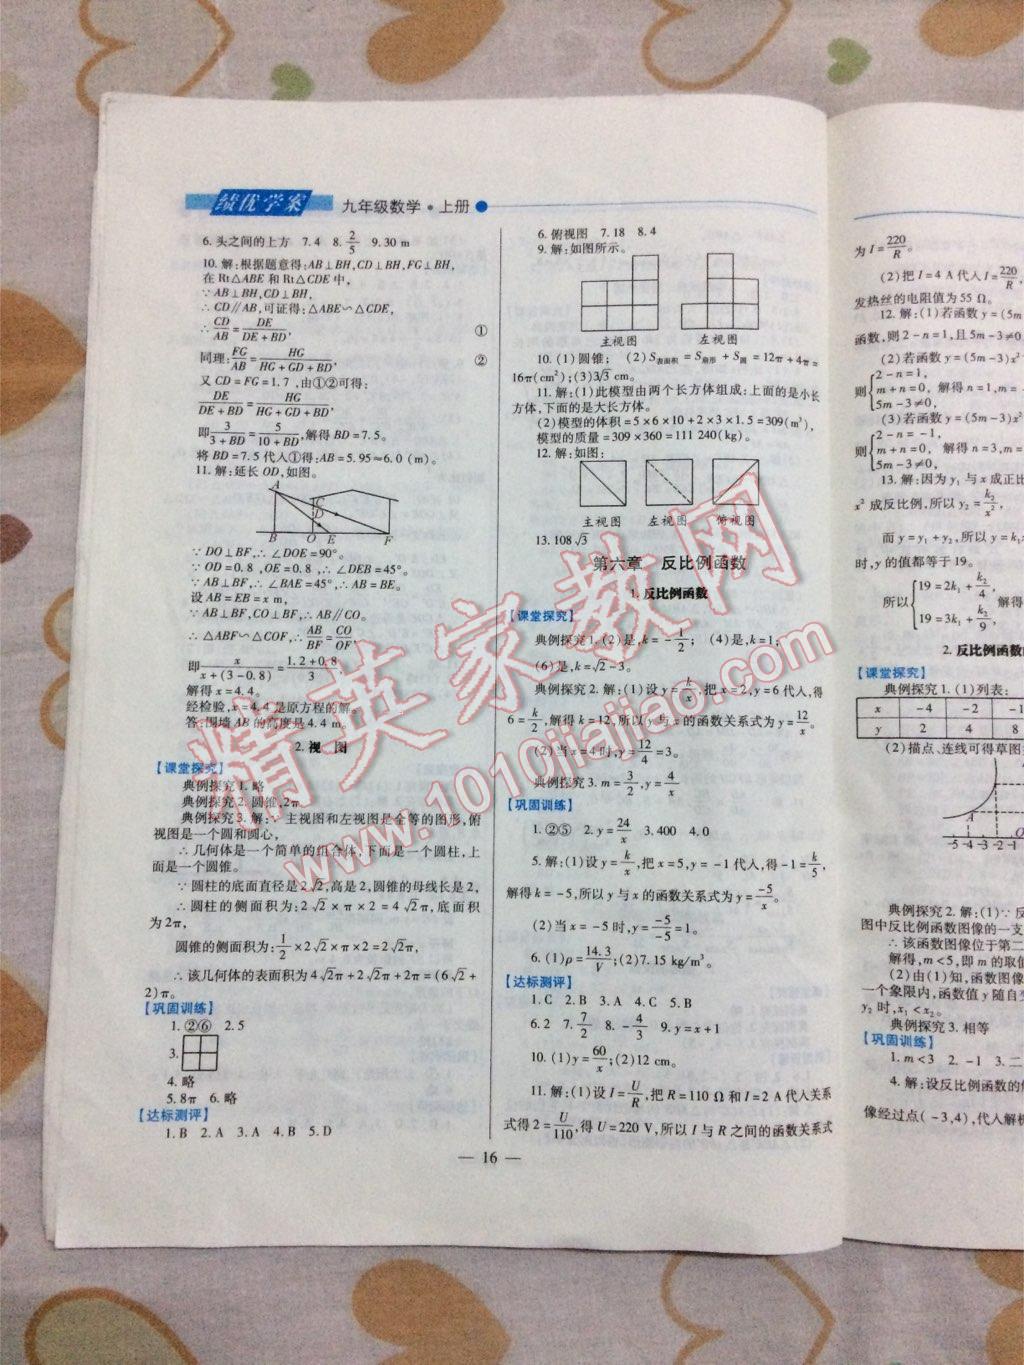 绩优学案 九年级数学·上册
6.头之间的上方 7.4 8.2/5 9.30 m
10.解:根据题意得:AB⊥BH,CD⊥BH,FG⊥BH,
在Rt△ABE和Rt△CDE中,
∵AB⊥BH,CD⊥BH,
∴CD∥AB,可证得:△ABE∽△CDE,
∴CD/AB=DE/(DE+BD), ①
同理:FG/AB=HG/(HG+GD+BD) ②
又CD=FG=1.7,由①②可得:
DE/(DE+BD)=HG/(HG+GD+BD),
即3/(3+BD)=5/(10+BD),解得BD=7.5.
将BD=7.5代入①得:AB=5.95≈6.0(m).
11.解:延长OD,如图.
A
C
D
B O E F
∵DO⊥BF,∴∠DOE=90°.
∵OD=0.8,OE=0.8,∴∠DEB=45°.
∵AB⊥BF,∴∠BAE=45°,∴AB=BE.
设AB=EB=x m,
∵AB⊥BF,CO⊥BF,∴AB∥CO.
∴△ABF∽△COF,∴AB/BF=CO/OF,
即x/(x+(3-0.8))=(1.2+0.8)/3
解得x=4.4.
经检验,x=4.4是原方程的解.
答:围墙AB的高度是4.4 m.
2.视 图
【课堂探究】
典例探究1.略
典例探究2.圆锥,2π
典例探究3.解:∵主视图和左视图是全等的图形,俯
视图是一个圆和圆心,
∴几何体是一个简单的组合体,下面是一个圆柱,上
面是一个圆锥.
∵圆柱的底面直径是2√2,高是2,圆锥的母线长是2,
∴圆柱的侧面积为:2√2×π×2=4√2π,底面积
为2π,
圆锥的侧面积为:1/2×2√2×π×2=2√2π,
∴该几何体的表面积为4√2π+2√2π+2π=(6√2+
2)π.
【巩固训练】
1.②⑥ 2.5
3.
4.略
5.8π 6.略
【达标测评】
1.B 2.A 3.A 4.B 5.D
6.俯视图 7.18 8.4
9.解:如图所示.
主视图 左视图
10.(1)圆锥; (2)S表面积=S扇形+S圆=12π+4π=
16π(cm²);(3)3√3 cm.
11.解:(1)此模型由两个长方体组成:上面的是小长
方体,下面的是大长方体.
(2)模型的体积=5×6×10+2×3×1.5=309(m³),
模型的质量=309×360=111 240(kg).
12.解:如图:
主视图 左视图 俯视图
13.108√3
第六章 反比例函数
1.反比例函数
【课堂探究】
典例探究1.(2)是,k=-1/2; (4)是,k=1;
(6)是,k=√2-3.
典例探究2.解:(1)设y=k/x,把x=2,y=6代入,得
6=k/2,解得k=12,所以y与x的函数关系式为y=12/x.
(2)当x=4时,y=12/4=3.
典例探究3.m=3/2,y=4/x
【巩固训练】
1.②⑤ 2.y=24/x 3.400 4.0
5.解:(1)设y=k/x,把x=5,y=-1代入,得-1=k/5,
解得k=-5,所以y与x的函数关系式为y=-5/x.
(2)当x=-5时,y=-5/-5=1.
6.(1)ρ=14.3/V;(2)7.15 kg/m³.
【达标测评】
1.C 2.B 3.A 4.C 5.B
6.2 7.7/2 8.-4/3 9.y=x+1
10.(1)y=60/x;(2)12 cm.
11.解:(1)设I=U/R,把R=110 Ω和I=2 A代入关系
式得2=U/110,得U=220 V,所以I与R之间的函数关系式
— 16 —
为I=220/R.
(2)把I=4 A代入I=220/R,
发热丝的电阻值为55 Ω.
12.解:(1)若函数y=(5m
函数,则2-n=1,且5m-3≠
(2)若函数y=(5m-3)x²
则{2-n=1, m+n=0, 5m-3≠0, 解得n=1,m=
(3)若函数y=(5m-3)x²
则{2-n=-1, m+n=0, 5m-3≠0, 解得n=3,m=
13.解:因为y₁与x成正比
x²成反比例,所以y₂=k₂/x²,
而y=y₁+y₂,所以y=k₁
时,y的值都等于19.
所以{19=2k₁+k₂/4, 19=3k₁+k₂/9, 解得
2.反比例函数
【课堂探究】
典例探究1.(1)列表:
x -4 -2 -1
y 2 4 8
(2)描点、连线可得草图
A
-5 -4 -3 -2 -1
典例探究2.解:(1)∵反
图中反比例函数图像的一支
∴该函数图像位于第二
解得,m<5,即m的取值
(2)由(1)知,函数图像
一个象限内,函数值y随自变
y₂时,x₁<x₂.
典例探究3.相等
【巩固训练】
1.m<3 2.-1 3.二
4.解:设反比例函数的
像经过点(-3,4),代入解析
精英家教网
www.1010jiajiao.com